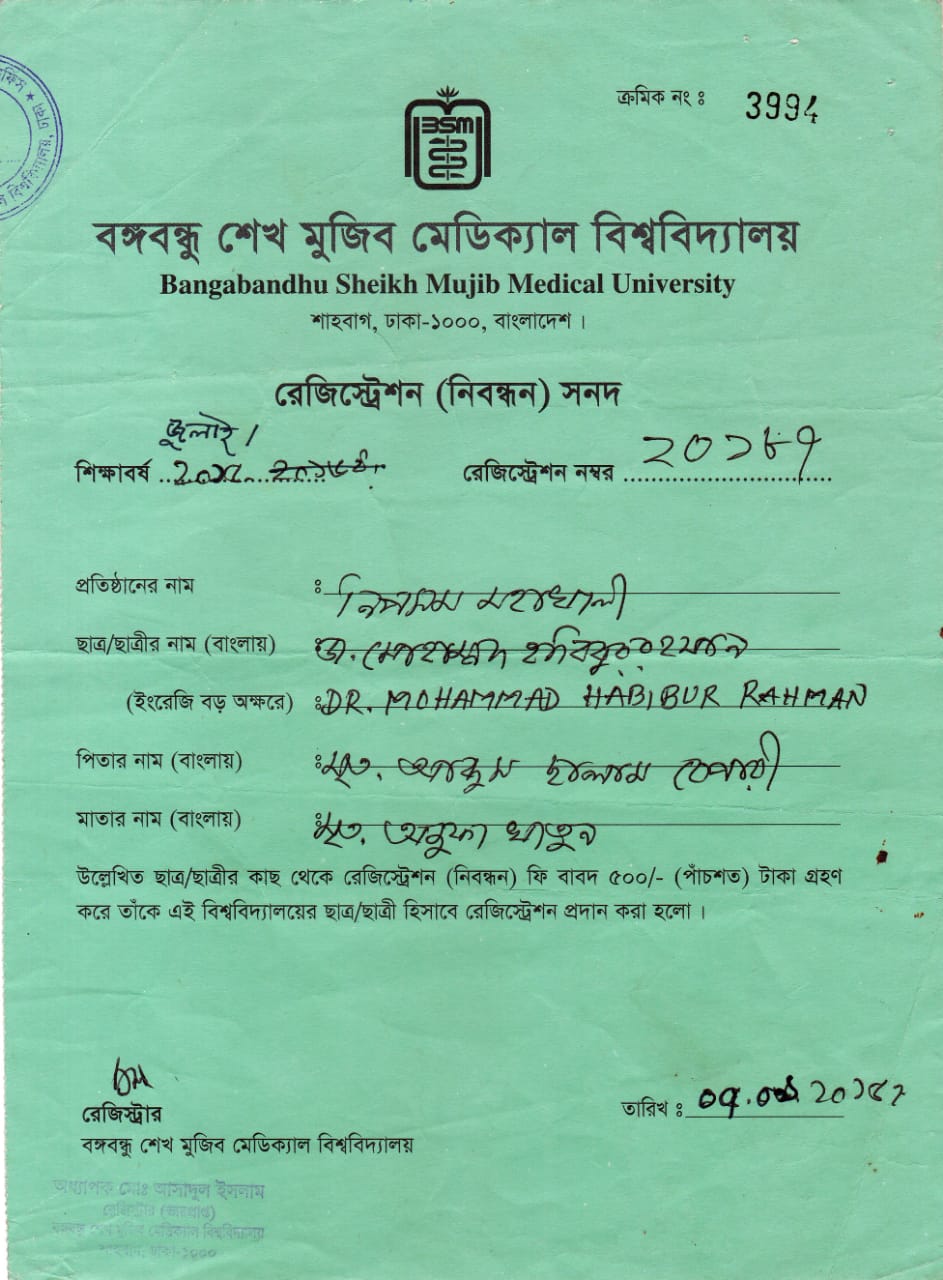 ক্রমিক নং ঃ 3994
BSM
বঙ্গবন্ধু শেখ মুজিব মেডিক্যাল বিশ্ববিদ্যালয়
Bangabandhu Sheikh Mujib Medical University
শাহবাগ, ঢাকা-১০০০, বাংলাদেশ।
রেজিস্ট্রেশন (নিবন্ধন) সনদ
জুলাই/
শিক্ষাবর্ষ
রেজিস্ট্রেশন নম্বর ২০১৮৭
প্রতিষ্ঠানের নাম ঃ নিপসম মহাখালী
ছাত্র/ছাত্রীর নাম (বাংলায়) ঃ ডা. মোহাম্মদ হাবিবুর রহমান
(ইংরেজি বড় অক্ষরে) ঃ DR. MOHAMMAD HABIBUR RAHMAN
পিতার নাম (বাংলায়) ঃ মৃত.
মাতার নাম (বাংলায়) ঃ মৃত. খাতুন
উল্লেখিত ছাত্র/ছাত্রীর কাছ থেকে রেজিস্ট্রেশন (নিবন্ধন) ফি বাবদ ৫০০/- (পাঁচশত) টাকা গ্রহণ
করে তাঁকে এই বিশ্ববিদ্যালয়ের ছাত্র/ছাত্রী হিসাবে রেজিস্ট্রেশন প্রদান করা হলো।
রেজিস্ট্রার
তারিখ ঃ
বঙ্গবন্ধু শেখ মুজিব মেডিক্যাল বিশ্ববিদ্যালয়
অধ্যাপক মোঃ আসাদুল ইসলাম
রেজিস্ট্রার (ভারপ্রাপ্ত)
বঙ্গবন্ধু শেখ মুজিব মেডিক্যাল বিশ্ববিদ্যালয়
শাহবাগ, ঢাকা-১০০০